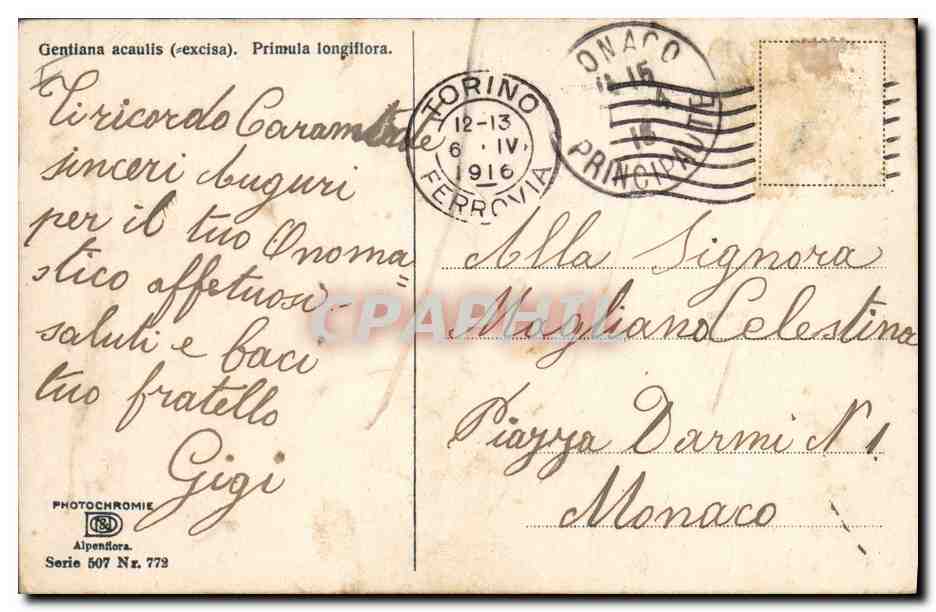 Gentiana acaulis (=excisa). Primula longiflora.
Ti ricordo Caramente
sinceri Auguri
per il tuo Onoma=
stico affetuosi
saluti e baci
tuo fratello
Gigi
PHOTOCHROMIE
Alpenflora.
Serie 507 Nr. 772
TORINO
12-13
6 · IV
1916
FERROVIA
MONACO
15
16
PRINCIPAUTÉ
CPAPHIL
Alla Signora
Magliano Celestina
Piazza Darmi N 1
Monaco